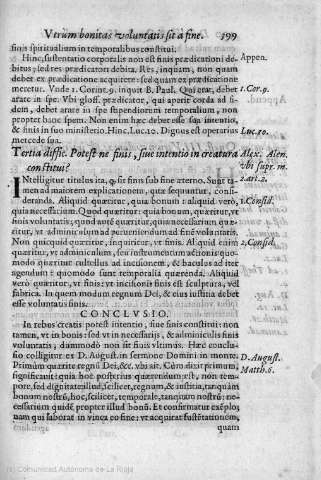 Vtrum bonitas voluntatis sit à fine. 399
finis spiritualium in temporalibus constitui.
Hinc, sustentatio corporalis non est finis prædicationi de-
bitus; sed res prædicatori debita. Res, inquam, non quam
debet ex prædicatione acquirere: sed quam ex prædicatione
meretur. Vnde 1. Corint. 9. inquit B. Paul. Qui arat, debet
arare in spe. Vbi gloss. prædicator, qui aperit corda ad fi-
dem, debet arare in spe stipendiorum temporalium, non
propter hanc spem. Non enim hæc debet esse sua intentio,
& finis in suo ministerio. Hinc Luc. 10. Dignus est operarius
mercede sua.
Appen.
1. Cor. 9.
Luc. 10.
Tertia diffic. Potest ne finis, siue intentio in creatura
constitui?
Alex. Alen.
vbi supr. m.
2. art. 2.
INtelligitur titulus ita, q sit finis sub fine æterno. Sunt ta-
men ad maiorem explicationem, quæ sequuntur, consi-
deranda. Aliquid quæritur, quia bonum: aliquid verò,
quia necessarium. Quod quæritur: quia bonum, quæritur, vt
finis voluntatis; quod autē quæritur, quia necessarium: quæ-
ritur, vt adminiculum ad perueniendum ad finē voluntatis.
Non quicquid quæritur, inquiritur, vt finis. Aliquid enim
quæritur, vt adminiculum, seu instrumentum actionis: quo-
modo quæritur cultellus ad incisionem, & baculus ad iter
agendum: & quomodo sunt temporalia quærenda. Aliquid
verò quæritur, vt finis: vt incisionis finis est sculptura, vel
fabrica. In quem modum regnum Dei, & eius iustitia debet
esse voluntatis finis.
1. Consid.
2. Consid.
CONCLVSIO.
In rebus creatis potest intentio, siue finis constitui: non
tamen, vt in bonis: sed vt in necessarijs, & adminiculis finis
voluntatis; dammodò non sit finis vltimus. Hæc conclu-
sio colligitur ex D. August. in sermone Domini in monte.
Primùm quærite regnū Dei, &c. vbi ait. Cùm dixit primum,
significauit: quia hoc posterius quærendum est, non tem-
pore, sed dignitate illud, scilicet, regnum, & iustitia, tanquàm
bonum nostrū, hoc, scilicet, temporale, tanquam nostrū: ne-
cessarium quidē propter illud bonū. Et confirmatur exēplo;
nam qui laborat in vinea eo fine: vt acquirat sustētationem,
quam
D. August.
Matth. 6.
(c) Comunidad Autónoma de La Rioja